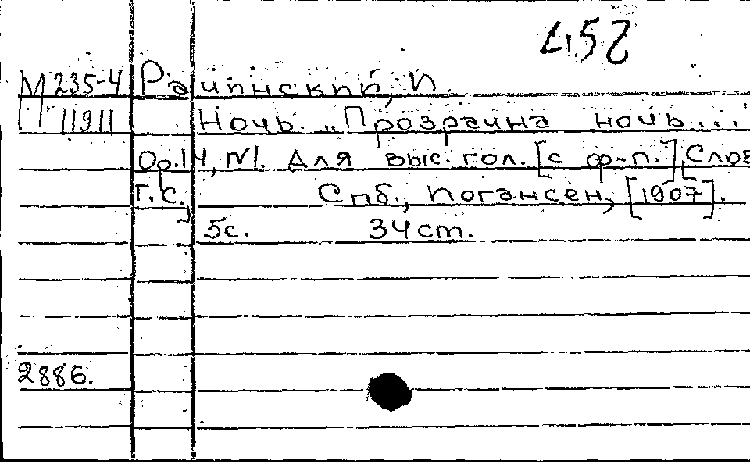 М 235-4 Рачинский, И.
11911 Ночь. „Прозрачна ночь...
Ор.14, №1. Для выс. гол. [с ф-п.] Слов
Г.С. Спб., Иогансен, [1907].
5с. 34 cm.
2886.